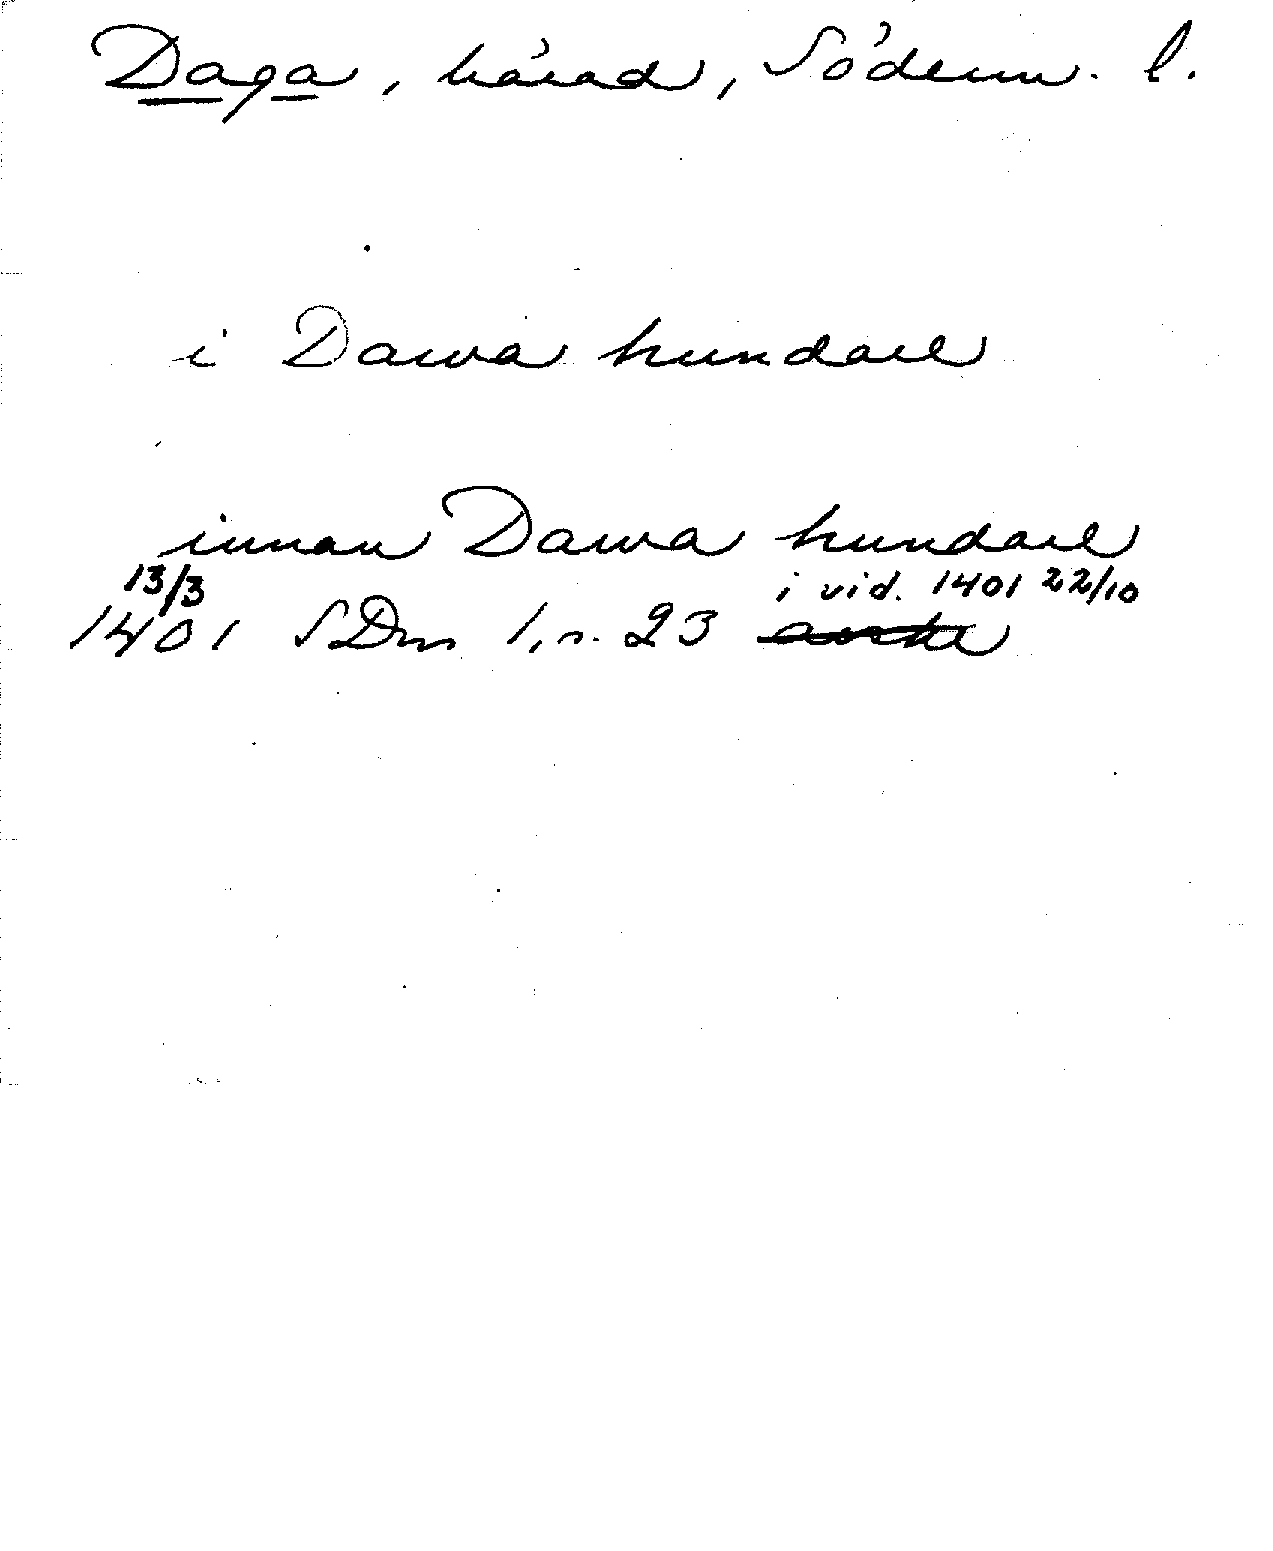 Daga, härad, Söderm. l.
i Dawa hundare
innan Dawa hundare
13/3 i vid. 1401 22/10
1401 SDns 1, s. 23